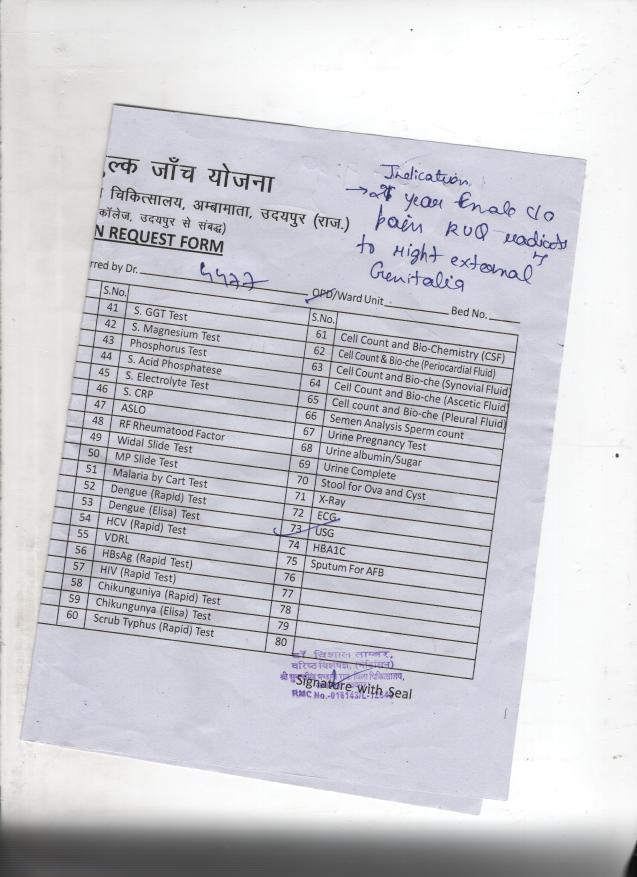 ुल्क जाँच योजना
चिकित्सालय, अम्बामाता, उदयपुर (राज.)
कॉलेज, उदयपुर से संबद्ध)
N REQUEST FORM
Indication
year female c/o
pain RUQ radiates
to right external
Genitalia
rred by Dr. 4477 OPD/Ward Unit Bed No.
S.No.
41 S. GGT Test
42 S. Magnesium Test
43 Phosphorus Test
44 S. Acid Phosphatese
45 S. Electrolyte Test
46 S. CRP
47 ASLO
48 RF Rheumatood Factor
49 Widal Slide Test
50 MP Slide Test
51 Malaria by Cart Test
52 Dengue (Rapid) Test
53 Dengue (Elisa) Test
54 HCV (Rapid) Test
55 VDRL
56 HBsAg (Rapid Test)
57 HIV (Rapid Test)
58 Chikunguniya (Rapid) Test
59 Chikungunya (Elisa) Test
60 Scrub Typhus (Rapid) Test
S.No.
61 Cell Count and Bio-Chemistry (CSF)
62 Cell Count & Bio-che (Periocardial Fluid)
63 Cell Count and Bio-che (Synovial Fluid)
64 Cell Count and Bio-che (Ascetic Fluid)
65 Cell count and Bio-che (Pleural Fluid)
66 Semen Analysis Sperm count
67 Urine Pregnancy Test
68 Urine albumin/Sugar
69 Urine Complete
70 Stool for Ova and Cyst
71 X-Ray
72 ECG
73 USG
74 HBA1C
75 Sputum For AFB
76
77
78
79
80
डॉ. विशाल
वरिष्ठ विशेषज्ञ,
Signature with Seal
RMC No.